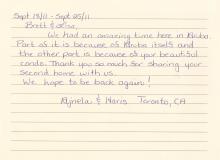 Sept 18/11 - Sept 25/11
Brett & Lisa,
We had an amazing time here in Aruba
Part of it is because of Aruba itself and
the other part is because of your beautiful
condo. Thank you so much for sharing your
second home with us.
We hope to be back again!
& Haris Toronto, CA